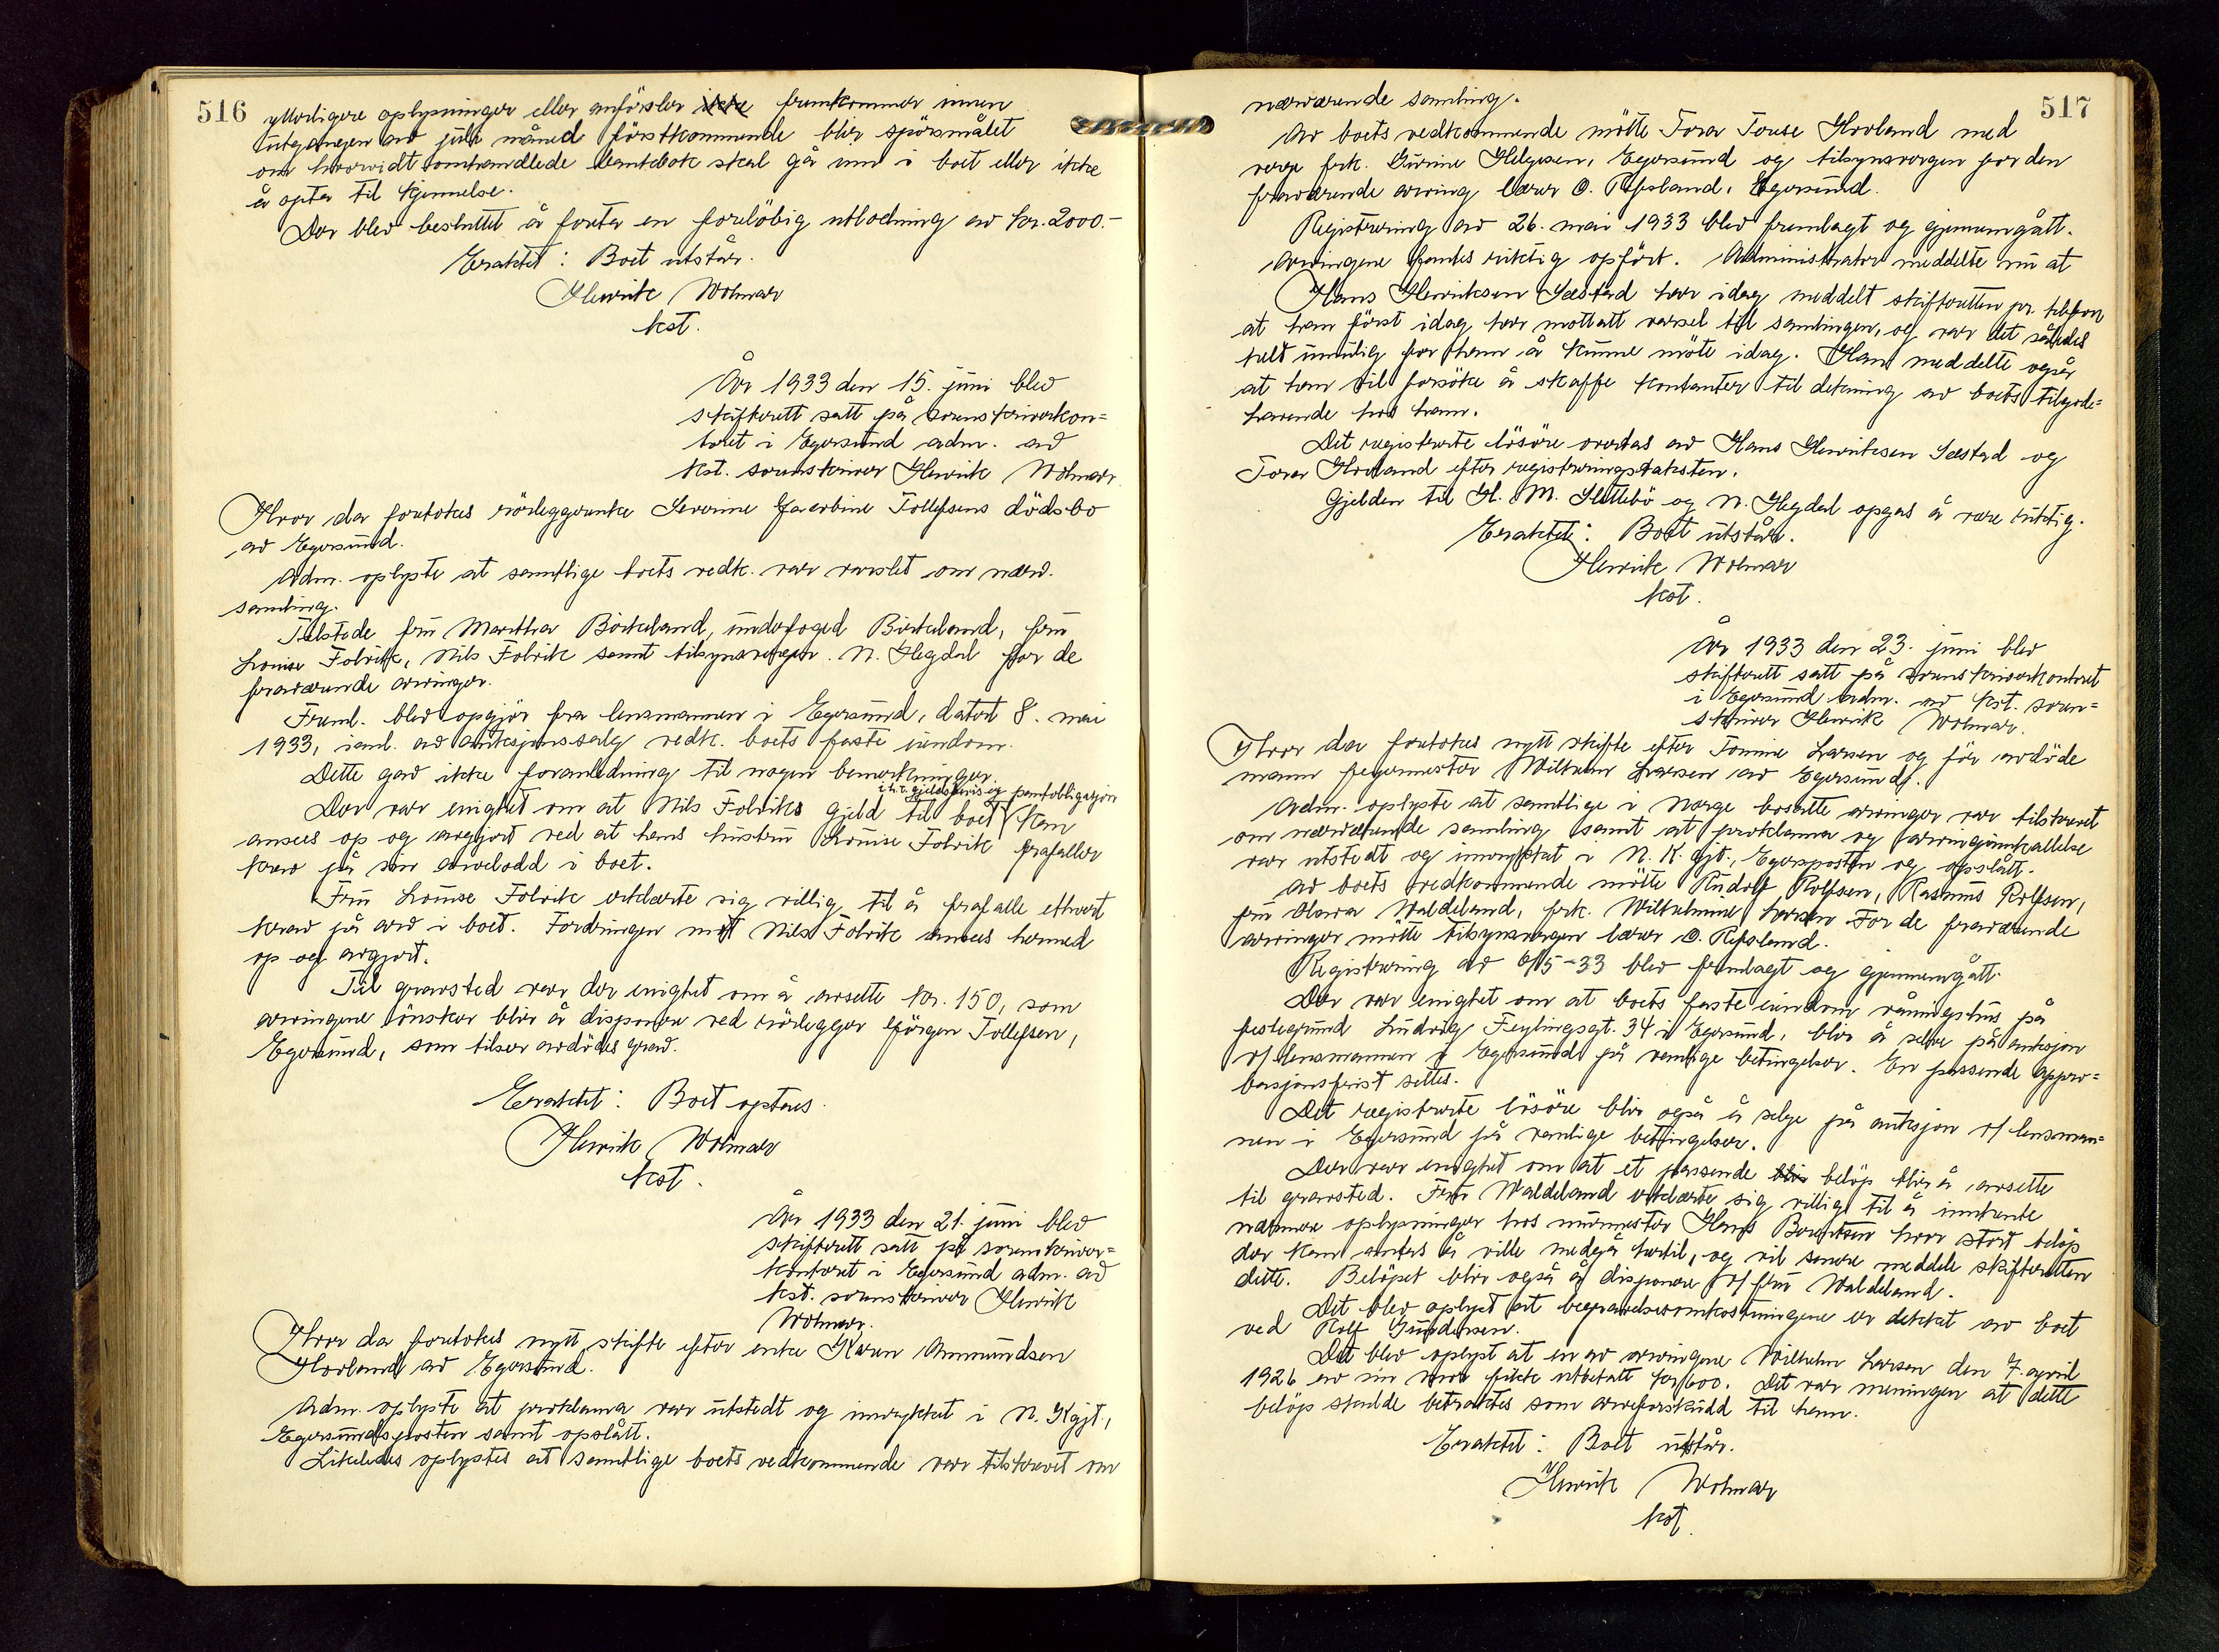 516
ytterligere oplysninger eller anførsler ikke fremkommer innen
utgangen av juli måned førstkommende blir spørsmålet
om hvorvidt omhandlede bankbok skal gå inn i boet eller ikke
å opta til kjennelse.
Der blev besluttet å foreta en foreløbig utlodning av kr. 2000.-
Esaktet: Boet utstår.
Henrik Wolmar
kst.
År 1933 den 15. juni blev
skifterett satt på sorenskriverkon=
toret i Egersund adm. av
kst. sorenskriver Henrik Wolmar
Hvor da foretokes rørleggerenke Serine Tollefsens dødsbo
av Egersund.
Adm. oplyste at samtlige boets vedk. var varslet om nærv.
samling.
Tilstede fru Martha Birkeland, underfoged Birkeland, fru
Louise Folvik, Nils Folvik samt tilsynsvergen N. Hegdal for de
fraværende arvinger.
Freml. blev opgjør fra lensmannen i Egersund, datert 8. mai
1933, i anl. av auksjonssalg vedk. boets faste eiendom.
Dette gav ikke foranledning til nogen bemerkninger.
i h.t. gjeldsbrev og pantobligasjon
Der var enighet om at Nils Folviks gjeld til boet kan
ansees op og avgjort ved at hans hustru Louise Folvik frafaller
krav på sin arvelodd i boet.
Fru Louise Folvik erklærte sig villig til å frafalle ethvert
krav på arv i boet. Fordringen mot Nils Folvik ansees hermed
op og avgjort.
Til gravsted var der enighet om å avsette kr. 150, som
arvingene ønsker blir å disponere ved rørlegger Jørgen Tollefsen,
Egersund, som tilser avdødes grav.
Esaktet: Boet optas.
Henrik Wolmar
kst.
År 1933 den 21. juni blev
skifterett satt på sorenskriver=
kontoret i Egersund adm. av
kst. sorenskriver Henrik
Wolmar.
Hvor da foretokes nytt skifte efter enke Karen Ammundsen
Hovland av Egersund.
Adm. oplyste at proklama var utstedt og innrykket i N. Kgjt.,
Egersundsposten samt opslått.
Likeledes oplystes at samtlige boets vedkommende var tilskrevet om
517
nærværende samling.
Av boets vedkommende møtte Tora Hovland med
verge frk. Gurine Helgesen, Egersund og tilsynsvergen for den
fraværende arving lærer O. Refsland, Egersund.
Registrering av 26. mai 1933 blev fremlagt og gjennemgått.
Arvingene fantes riktig opført. Administrator meddelte nu at
Hans Henriksen Sæstad har idag meddelt skifteretten pr. telefon
at han først idag har mottatt varsel til samlingen, og var det således
helt umulig for ham å kunne møte idag. Han meddelte også
at han vil forsøke å skaffe kontanter til dekning av boets tilgode=
havende hos ham.
Det registrerte løsøre overtas av Hans Henriksen Sæstad og
Tora Hovland efter registreringstaksten.
Gjelden til H. M. Slettebø og N. Hegdal opgas å være riktig.
Esaktet: Boet utstår.
Henrik Wolmar
kst.
År 1933 den 23. juni blev
skifterett satt på sorenskriverkontoret
i Egersund adm. av kst. soren=
skriver Henrik Wolmar.
Hvor da foretokes nytt skifte efter Tomine Larsen og før avdøde
mann fegermester Wilhelm Larsen av Egersund.
Adm. oplyste at samtlige i Norge bosatte arvinger var tilskrevet
om nærværende samling samt at proklama og arvinginnkallelse
var utstedt og innrykket i N. K. gjt., Egersposten og opslått.
Av boets vedkommende møtte Rudolf Rolfsen, Rasmus Rolfsen,
fru Waldeland, frk. Wilhelmine Larsen. For de fraværende
arvinger møtte tilsynsvergen lærer O. Refsland.
Registrering av 6/5-33 blev fremlagt og gjennemgått.
Der var enighet om at boets faste eiendom våningshus på
festegrund Ludvig Feylingsgt. 34 i Egersund, blir å selge på auksjon
v/ lensmannen i Egersund på vanlige betingelser. En passende appro=
basjonsfrist settes.
Det registrerte løsøre blir også å selge på auksjon v/ lensman=
nen i Egersund på vanlige betingelser.
Der var enighet om at et passende blir beløp blir å avsette
til gravsted. Fru Waldeland erklærte sig villig til å innhente
nærmere oplysninger hos murmester Hans Berentsen hvor stort beløp
der kan antas å ville medgå hertil, og vil senere meddele skifteretten
dette. Beløpet blir også å disponere v/ fru Waldeland.
Det blev oplyst at begravelsesomkostningene er dekket av boet
ved Rolf Gundersen.
Det blev oplyst at en av arvingene Wilhelm Larsen den 7. april
1926 av sin mor fikk utbetalt kr. 600. Det var meningen at dette
beløp skulde betraktes som arveforskudd til ham.
Esaktet: Boet utstår.
Henrik Wolmar
kst.